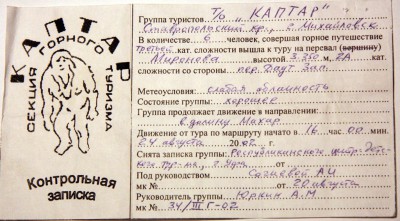 КАПТАР
СЕКЦИЯ
ГОРНОГО
ТУРИЗМА
Контрольная
записка
Группа туристов Т/о „КАПТАР"
Ставропольский кр., г. Михайловск
В количестве 6 человек, совершая горное путешествие
третьей кат. сложности вышла к туру на перевал (вершину)
Миронова высотой 3.350 м, 2А кат.
сложности со стороны пер. Фаут Зап.
Метеоусловия: слабая облачность
Состояние группы: хорошее
Группа продолжает движение в направлении:
в долину Махар
Движение от тура по маршруту начато в 16 час. 00 мин.
24 августа 2002 г.
Снята записка группы: Республиканский центр
Под руководством А И
мк № от 20 августа
Руководитель группы Юркин А.М
мк № 34/III Г-02